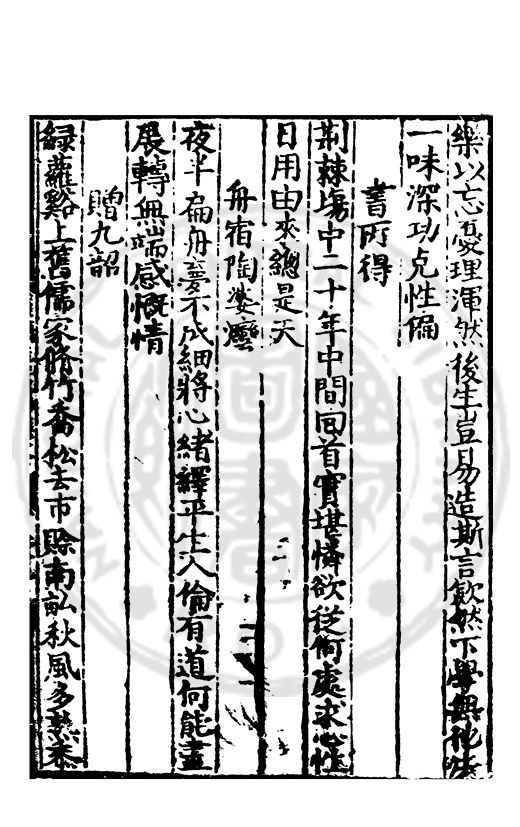 樂以忘憂理渾然後生豈易造斯言歛然下學無他法
一味深功克性偏
書所得
荊棘塲中二十年中間回首實堪憐欲從何處求心性
日用由來總是天
舟宿陶婆灣
夜半扁舟夢不成細將心緒繹平生人倫有道何能盡
展轉無端感慨情
贈九韶
綠蘿谿上舊儒家脩竹喬松去市賖南畝秋風多熟黍